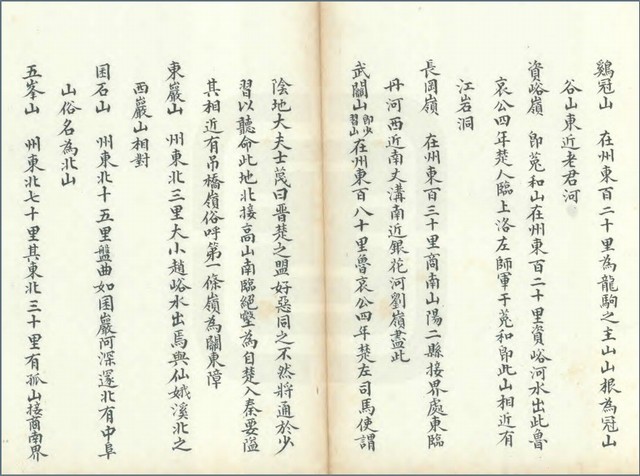 鷄冠山　在州東百二十里為龍駒之主山山根為冠山
谷山東近老君河
資峪嶺　即菟和山在州東百二十里資峪河水出此魯
哀公四年楚人臨上洛左師軍于菟和即此山相近有
江岩洞
長岡嶺　在州東百三十里商南山陽二縣接界處東臨
丹河西近南丈溝南近銀花河劉嶺盡此
武關山即少習山在州東百八十里魯哀公四年楚左司馬使謂
陰地大夫士蔑曰晋楚之盟好惡同之不然將通於少
習以聽命此地北接高山南臨絕壑為自楚入秦要隘
其相近有吊橋嶺俗呼第一條嶺為關東障
東巖山　州東北三里大小趙峪水出焉與仙娥溪北之
西巖山相對
囷石山　州東北十五里盤曲如囷巖阿深邃北有中阜
山俗名為北山
五峯山　州東北七十里其東北三十里有孤山接商南界